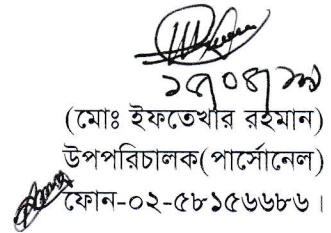 (মোঃ ইফতেখার রহমান)
উপপরিচালক(পার্সোনেল)
ফোন-০২-৫৮১৫৬৬৮৬।